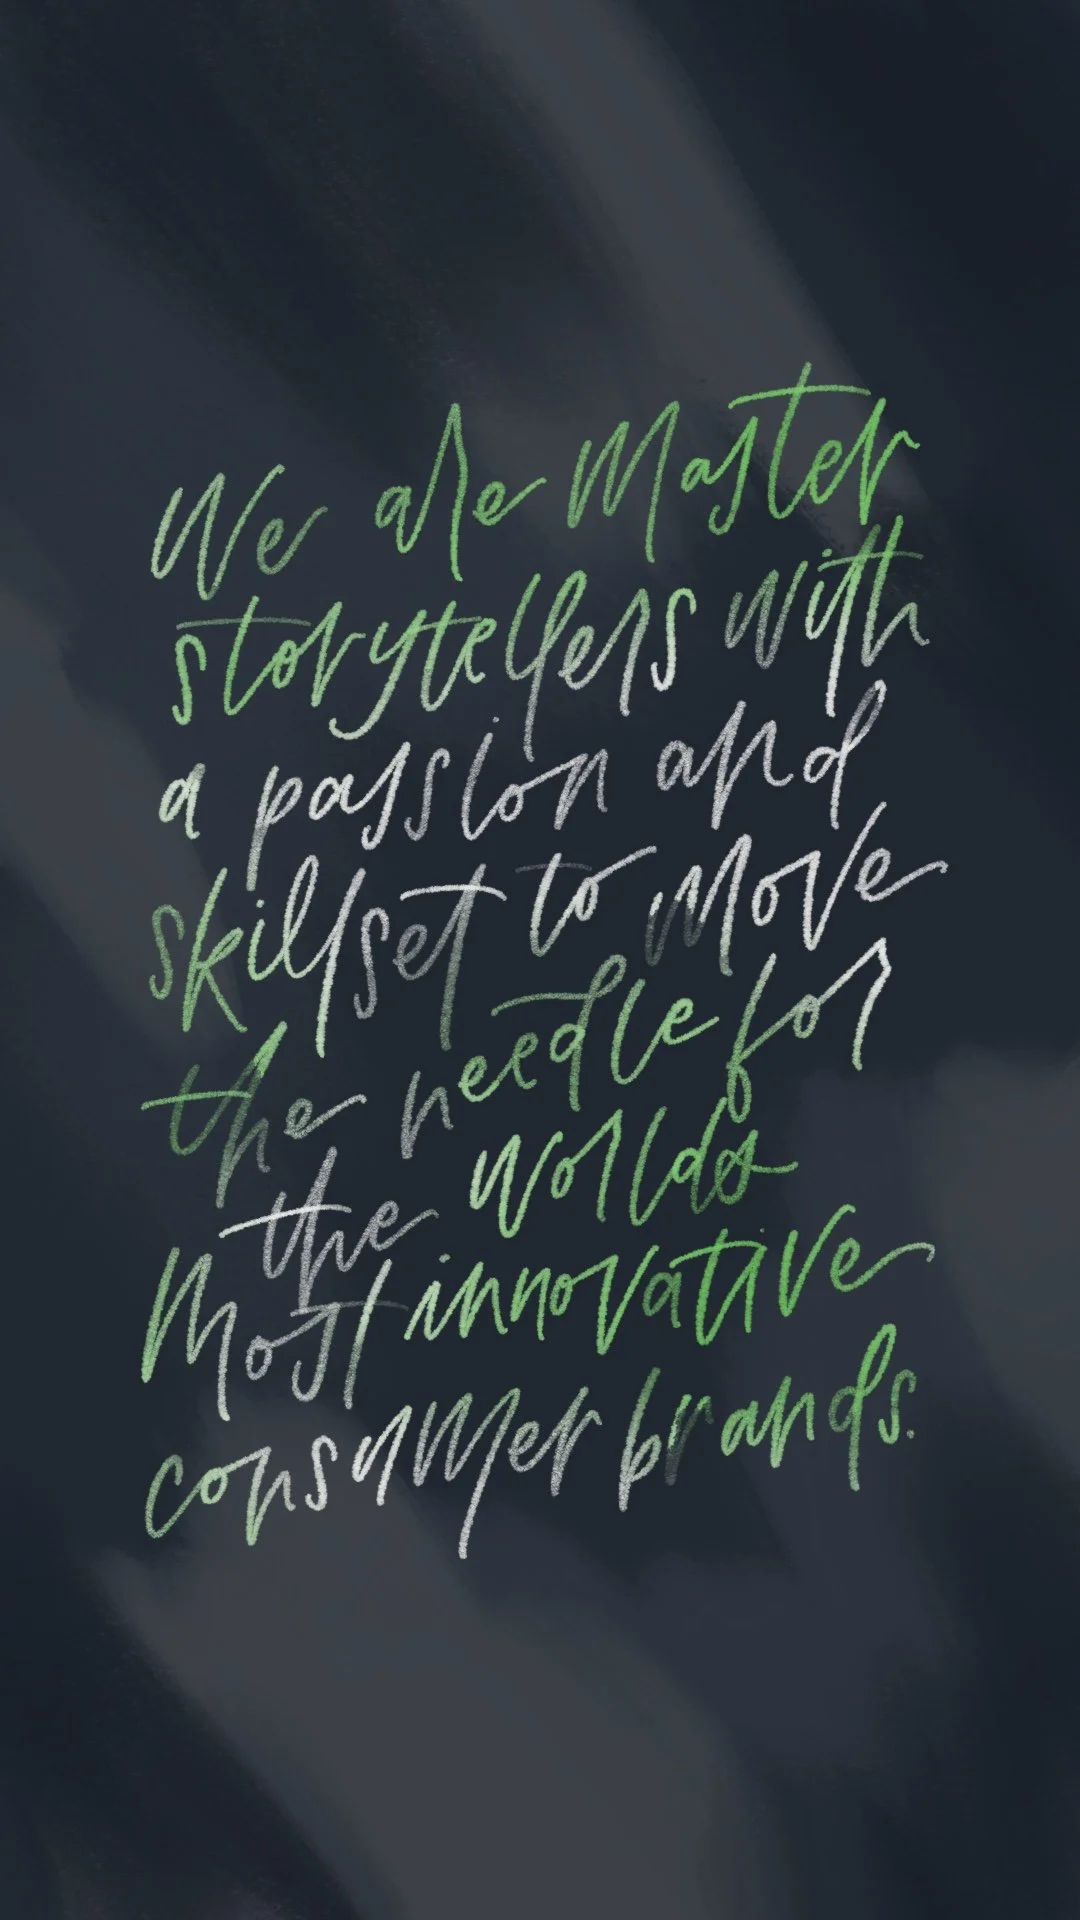 We are Master
storytellers with
a passion and
skillset to move
the needle for
the worlds
Most innovative
consumer brands.